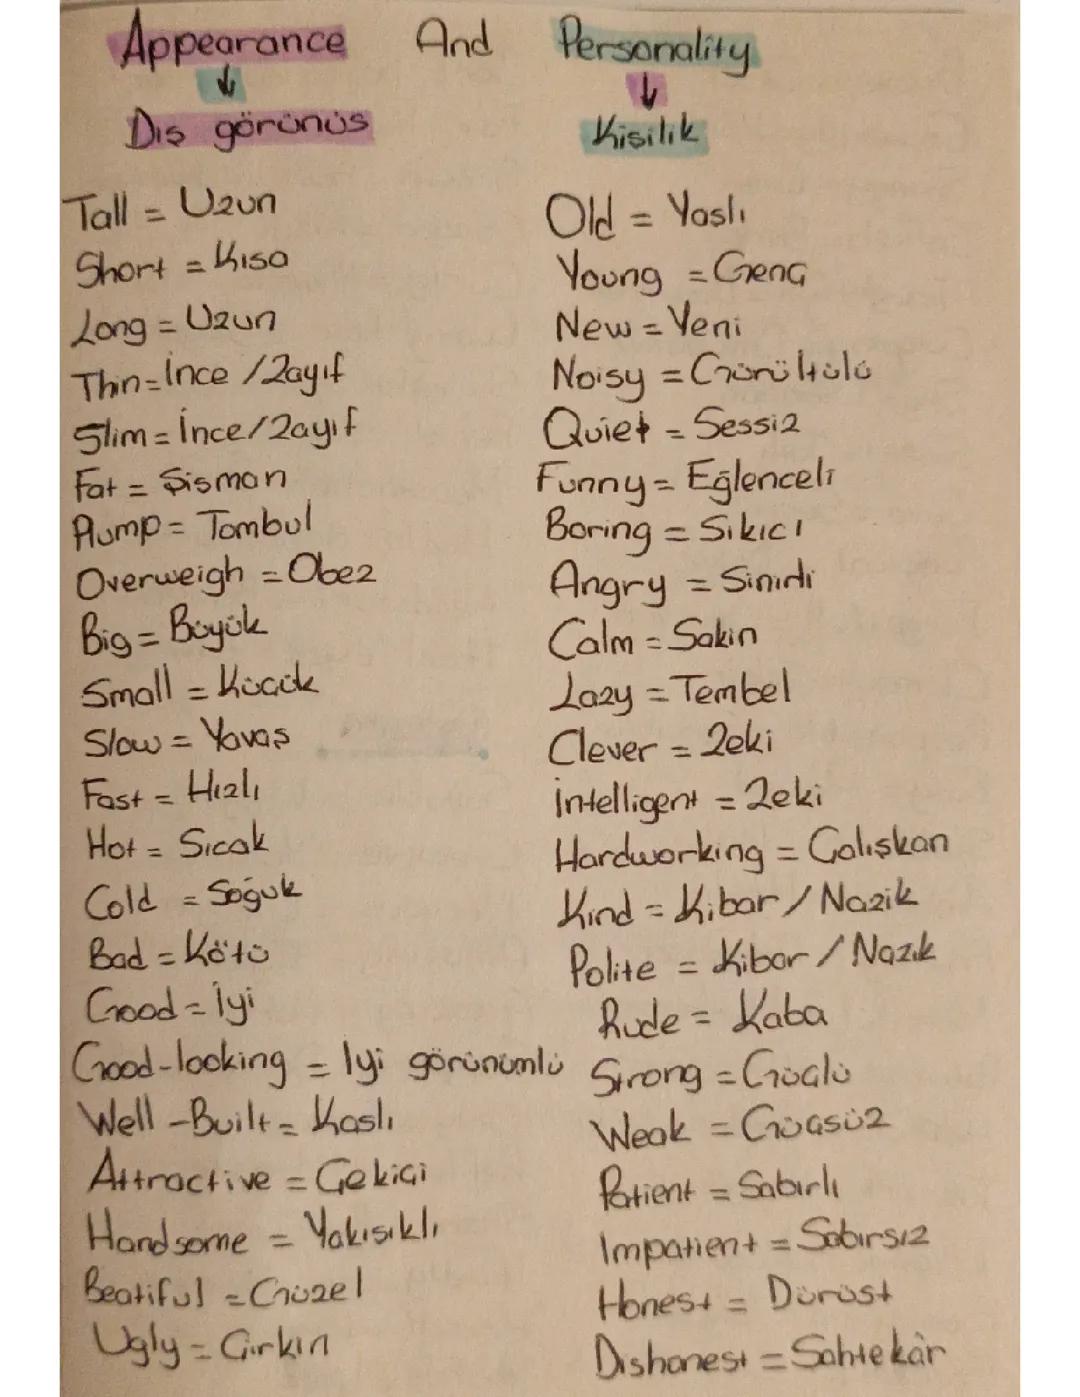 Appearance And Personality
↓ ↓
Dış görünüş Kişilik
Tall = Uzun
Short = Kısa
Long = Uzun
Thin = İnce / Zayıf
Slim = İnce / Zayıf
Fat = Şişman
Plump = Tombul
Overweigh = Obez
Big = Büyük
Small = Küçük
Slow = Yavaş
Fast = Hızlı
Hot = Sıcak
Cold = Soğuk
Bad = Kötü
Good = İyi
Good-looking = Iyi görünümlü
Well-Built = Kaslı
Attractive = Çekici
Handsome = Yakışıklı
Beatiful = Güzel
Ugly = Çirkin
Old = Yaşlı
Young = Genç
New = Yeni
Noisy = Gürültülü
Quiet = Sessiz
Funny = Eğlenceli
Boring = Sıkıcı
Angry = Sinirli
Calm = Sakin
Lazy = Tembel
Clever = Zeki
İntelligent = Zeki
Hardworking = Çalışkan
Kind = Kibar / Nazik
Polite = Kibar / Nazik
Rude = Kaba
Strong = Güçlü
Weak = Güçsüz
Patient = Sabırlı
Impatient = Sabırsız
Honest = Dürüst
Dishonest = Sahtekâr